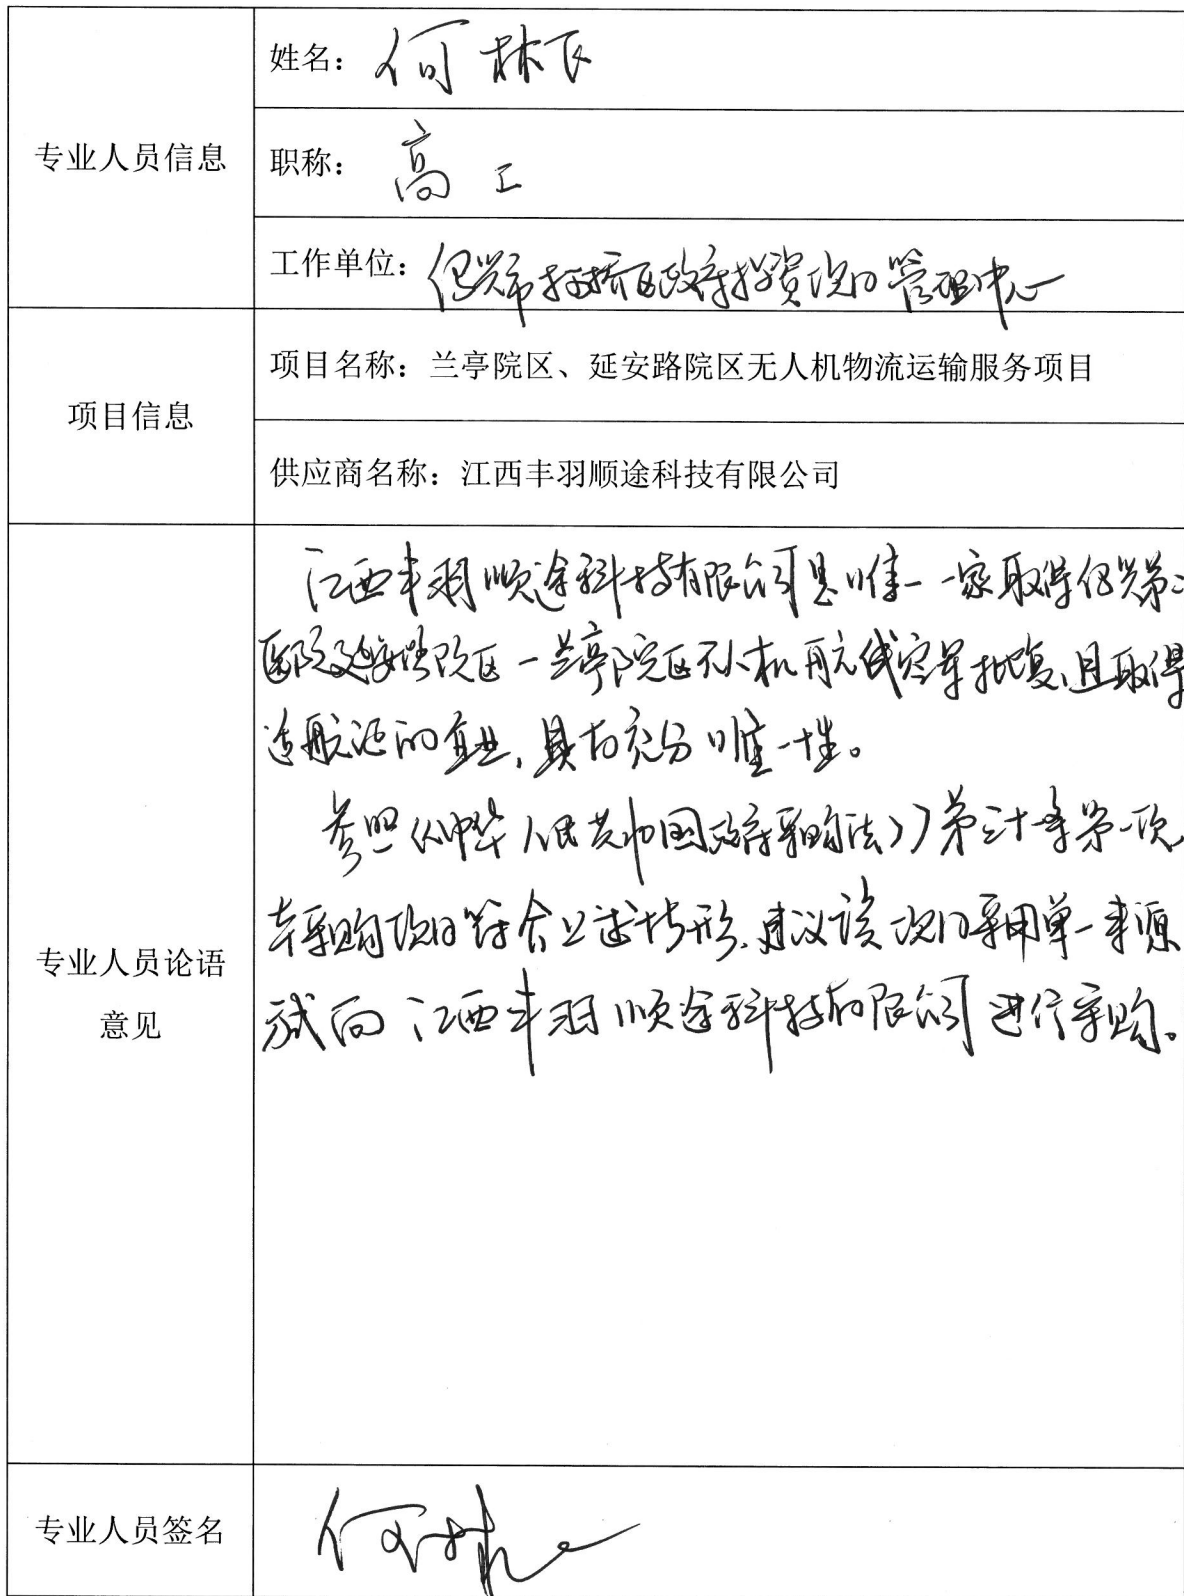 专业人员信息
姓名：何林飞
职称：高工
工作单位：绍兴市柯桥区政府投资项目管理中心
项目信息
项目名称：兰亭院区、延安路院区无人机物流运输服务项目
供应商名称：江西丰羽顺途科技有限公司
专业人员论语
意见
江西丰羽顺途科技有限公司是唯一一家取得绍兴第二
医院延安路院区一兰亭院区无人机航线空军批复，且取得
适航证的企业，具有充分唯一性。
参照《中华人民共和国政府采购法》第三十一条第一项，
本采购项目符合上述情形，建议该项目采用单一来源
式向江西丰羽顺途科技有限公司进行采购。
专业人员签名
何林